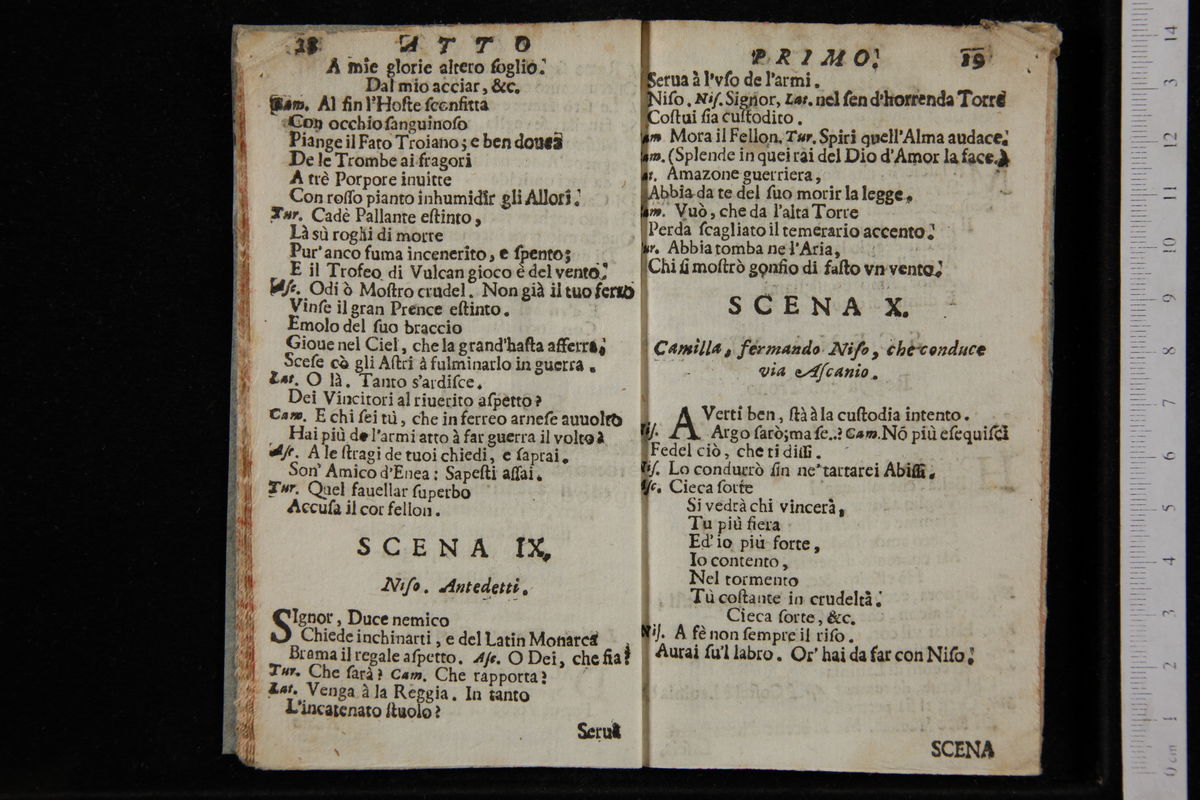 18 ATTO
A mie glorie altero ſoglio.
Dal mio acciar, &c.
Cam. Al fin l'Hoſte ſconfitta
Con occhio ſanguinoſo
Piange il Fato Troiano; e ben doueа
De le Trombe ai fragori
A trè Porpore inuitte
Con roſſo pianto inhumidir gli Allori.
Tur. Cadè Pallante eſtinto,
Là sù roghi di morte
Pur'anco fuma incenerito, e ſpento;
E il Trofeo di Vulcan gioco è del vento.
Aſc. Odi ò Moſtro crudel. Non già il tuo ferro
Vinſe il gran Prence eſtinto.
Emolo del ſuo braccio
Gioue nel Ciel, che la grand'haſta afferra,
Sceſe cò gli Aſtri à fulminarlo in guerra.
Lat. O là. Tanto s'ardiſce.
Dei Vincitori al riuerito aſpetto?
Cam. E chi ſei tù, che in ferreo arneſe auuolto
Hai più de l'armi atto à far guerra il volto?
Aſc. A le ſtragi de tuoi chiedi, e ſaprai.
Son' Amico d'Enea: Sapeſti aſſai.
Tur. Quel fauellar ſuperbo
Accuſa il cor fellon.
SCENA IX.
Niſo. Antedetti.
SIgnor, Duce nemico
Chiede inchinarti, e del Latin Monarca
Brama il regale aſpetto. Aſc. O Dei, che ſia?
Tur. Che ſarà? Cam. Che rapporta?
Lat. Venga à la Reggia. In tanto
L'incatenato ſtuolo?
Serua
PRIMO. 19
Serua à l'vſo de l'armi.
Niſo. Niſ. Signor, Lat. nel ſen d'horrenda Torre
Coſtui ſia cuſtodito.
am Mora il Fellon. Tur. Spiri quell'Alma audace.
am. (Splende in quei rai del Dio d'Amor la face.)
at. Amazone guerriera,
Abbia da te del ſuo morir la legge.
am. Vuò, che da l'alta Torre
Perda ſcagliato il temerario accento.
ur. Abbia tomba ne l'Aria,
Chi ſi moſtrò gonfio di faſto vn vento.
SCENA X.
Camilla, fermando Niſo, che conduce
via Aſcanio.
AVerti ben, ſtà à la cuſtodia intento.
Niſ. Argo ſarò; ma ſe..? Cam. Nõ più eſequiſci
Fedel ciò, che ti diſſi.
Niſ. Lo condurrò ſin ne' tartarei Abiſſi.
Aſc. Cieca ſorte
Si vedrà chi vincerà,
Tu più fiera
Ed' io più forte,
Io contento,
Nel tormento
Tù coſtante in crudeltà.
Cieca ſorte, &c.
Niſ. A fè non ſempre il riſo.
Aurai ſu'l labro. Or' hai da far con Niſo.
SCENA
0 cm 1 2 3 4 5 6 7 8 9 10 11 12 13 14